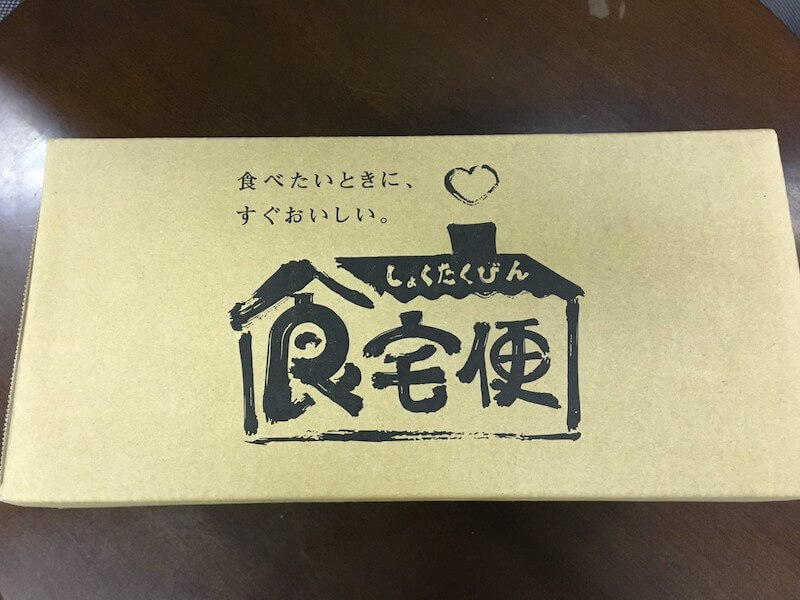 食べたいときに、
すぐおいしい。
しょくたくびん
食宅便